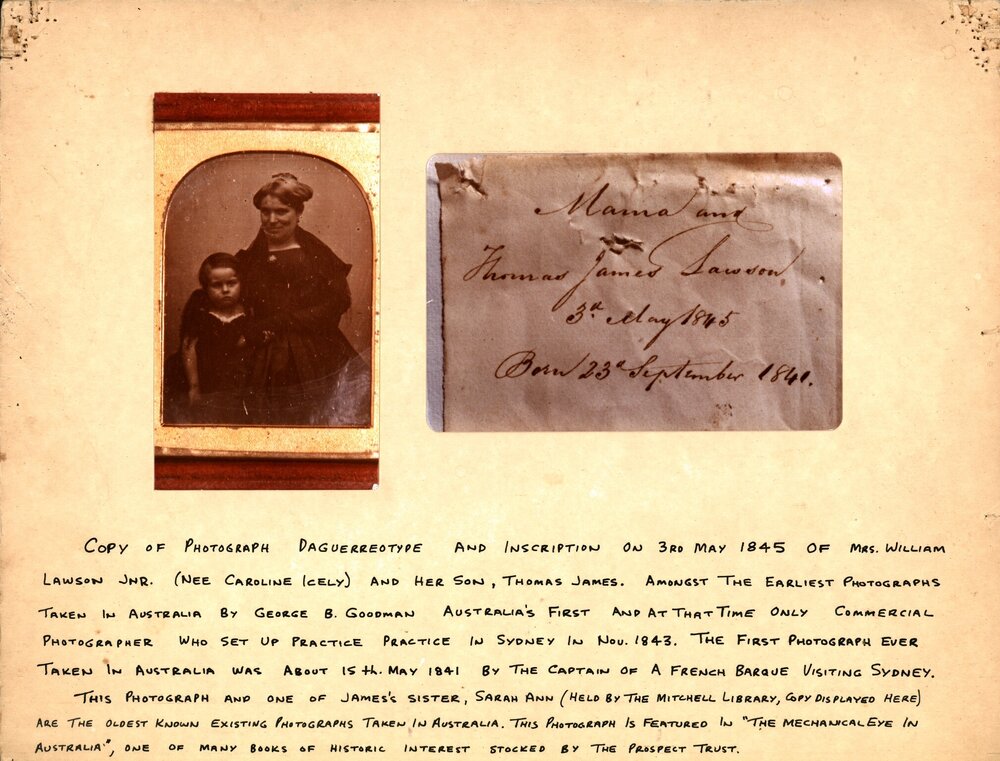 Mama and
Thomas James Lawson
3d May 1845
Born 23d September 1841.
COPY OF PHOTOGRAPH DAGUERREOTYPE AND INSCRIPTION ON 3RD MAY 1845 OF MRS. WILLIAM
LAWSON JNR. (NEE CAROLINE ICELY) AND HER SON, THOMAS JAMES. AMONGST THE EARLIEST PHOTOGRAPHS
TAKEN IN AUSTRALIA BY GEORGE B. GOODMAN AUSTRALIA'S FIRST AND AT THAT TIME ONLY COMMERCIAL
PHOTOGRAPHER WHO SET UP PRACTICE PRACTICE IN SYDNEY IN NOV. 1843. THE FIRST PHOTOGRAPH EVER
TAKEN IN AUSTRALIA WAS ABOUT 15th. MAY 1841 BY THE CAPTAIN OF A FRENCH BARQUE VISITING SYDNEY.
THIS PHOTOGRAPH AND ONE OF JAMES'S SISTER, SARAH ANN (HELD BY THE MITCHELL LIBRARY, COPY DISPLAYED HERE)
ARE THE OLDEST KNOWN EXISTING PHOTOGRAPHS TAKEN IN AUSTRALIA. THIS PHOTOGRAPH IS FEATURED IN "THE MECHANICAL EYE IN
AUSTRALIA", ONE OF MANY BOOKS OF HISTORIC INTEREST STOCKED BY THE PROSPECT TRUST.